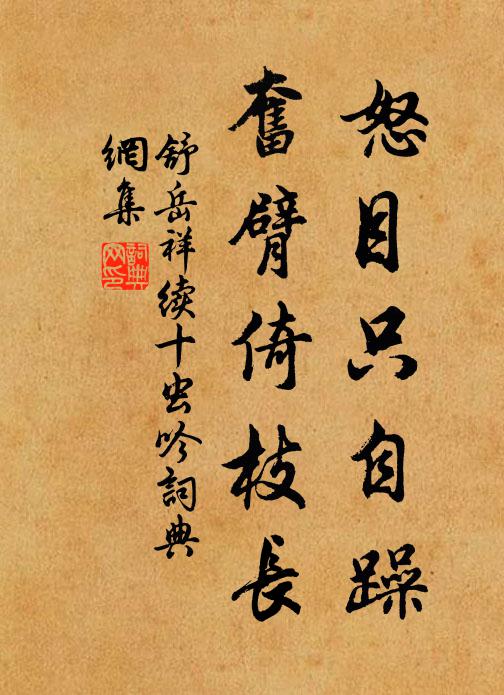 怒目只自躁
奮臂倚枝長
舒岳祥續十虫吟詞典
網集
詞典
网印